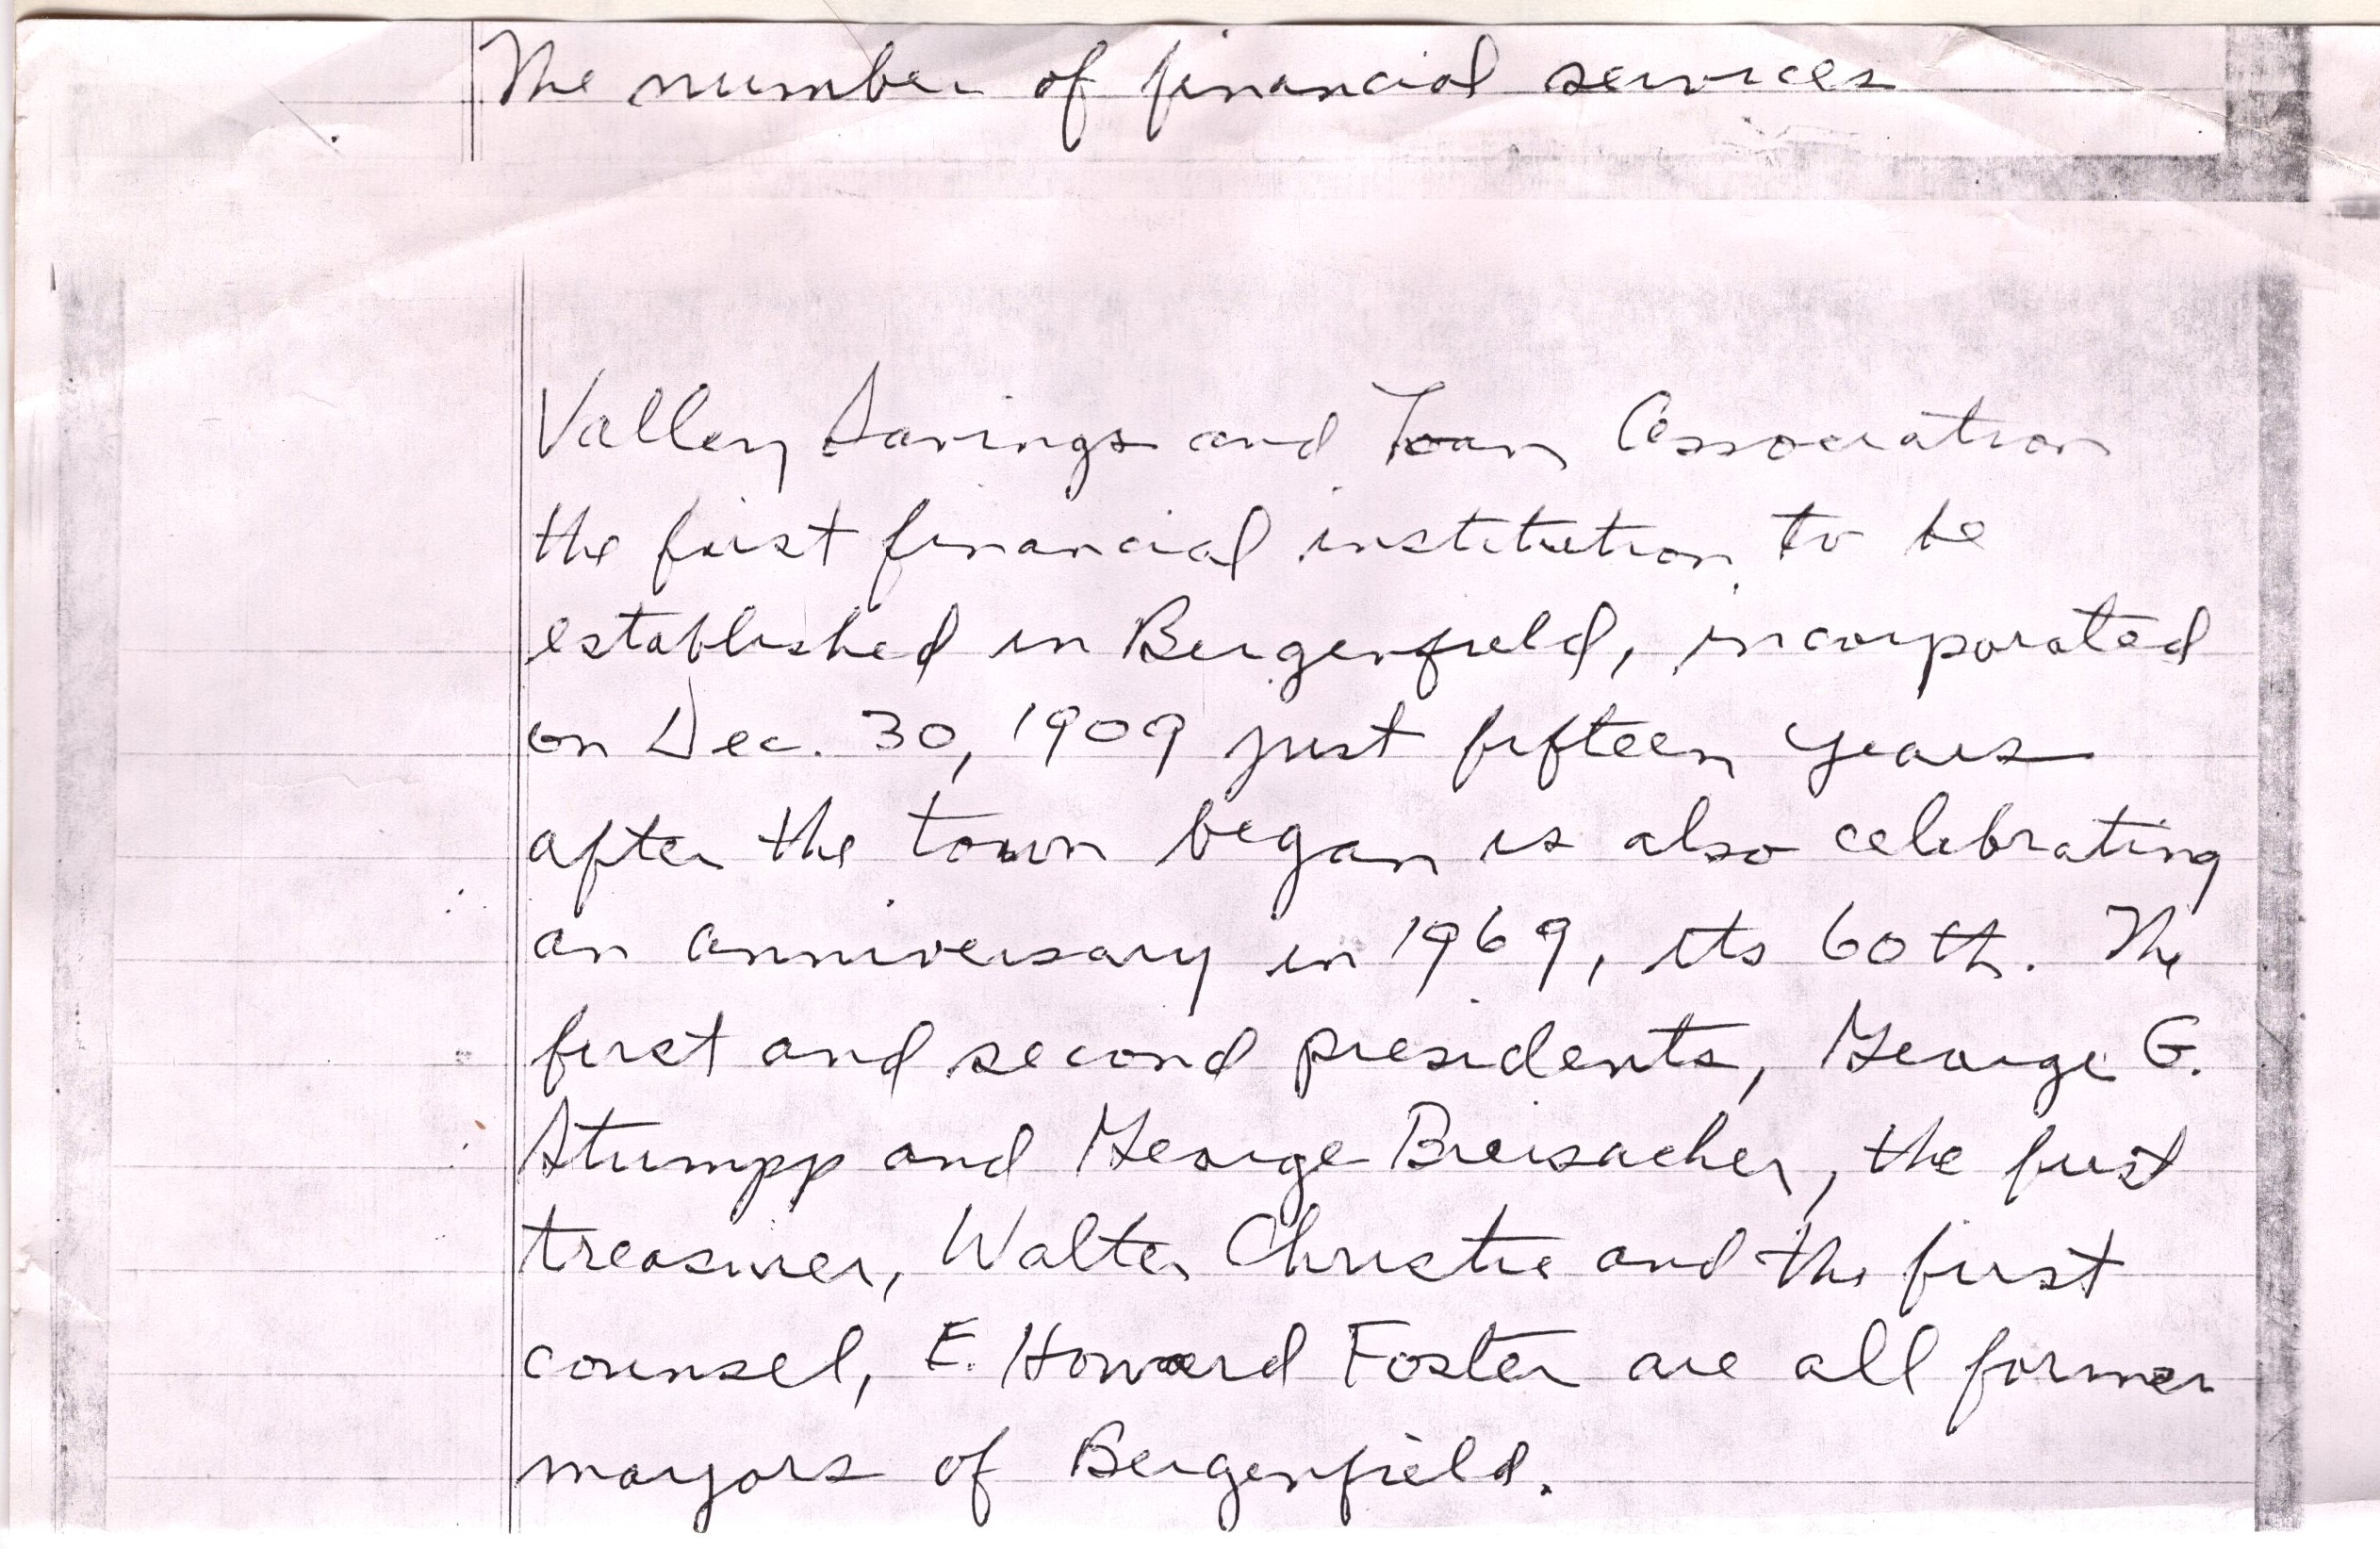 The number of financial services
Valley Savings and Loan Association
the first financial institution, to be
established in Bergenfield, incorporated
on Dec. 30, 1909 just fifteen years
after the town began is also celebrating
an anniversary in 1969, its 60th. The
first and second presidents, George G.
Stumpp and George Breisacher, the first
treasurer, Walter Christie and the first
counsel, E. Howard Foster are all former
mayors of Bergenfield.